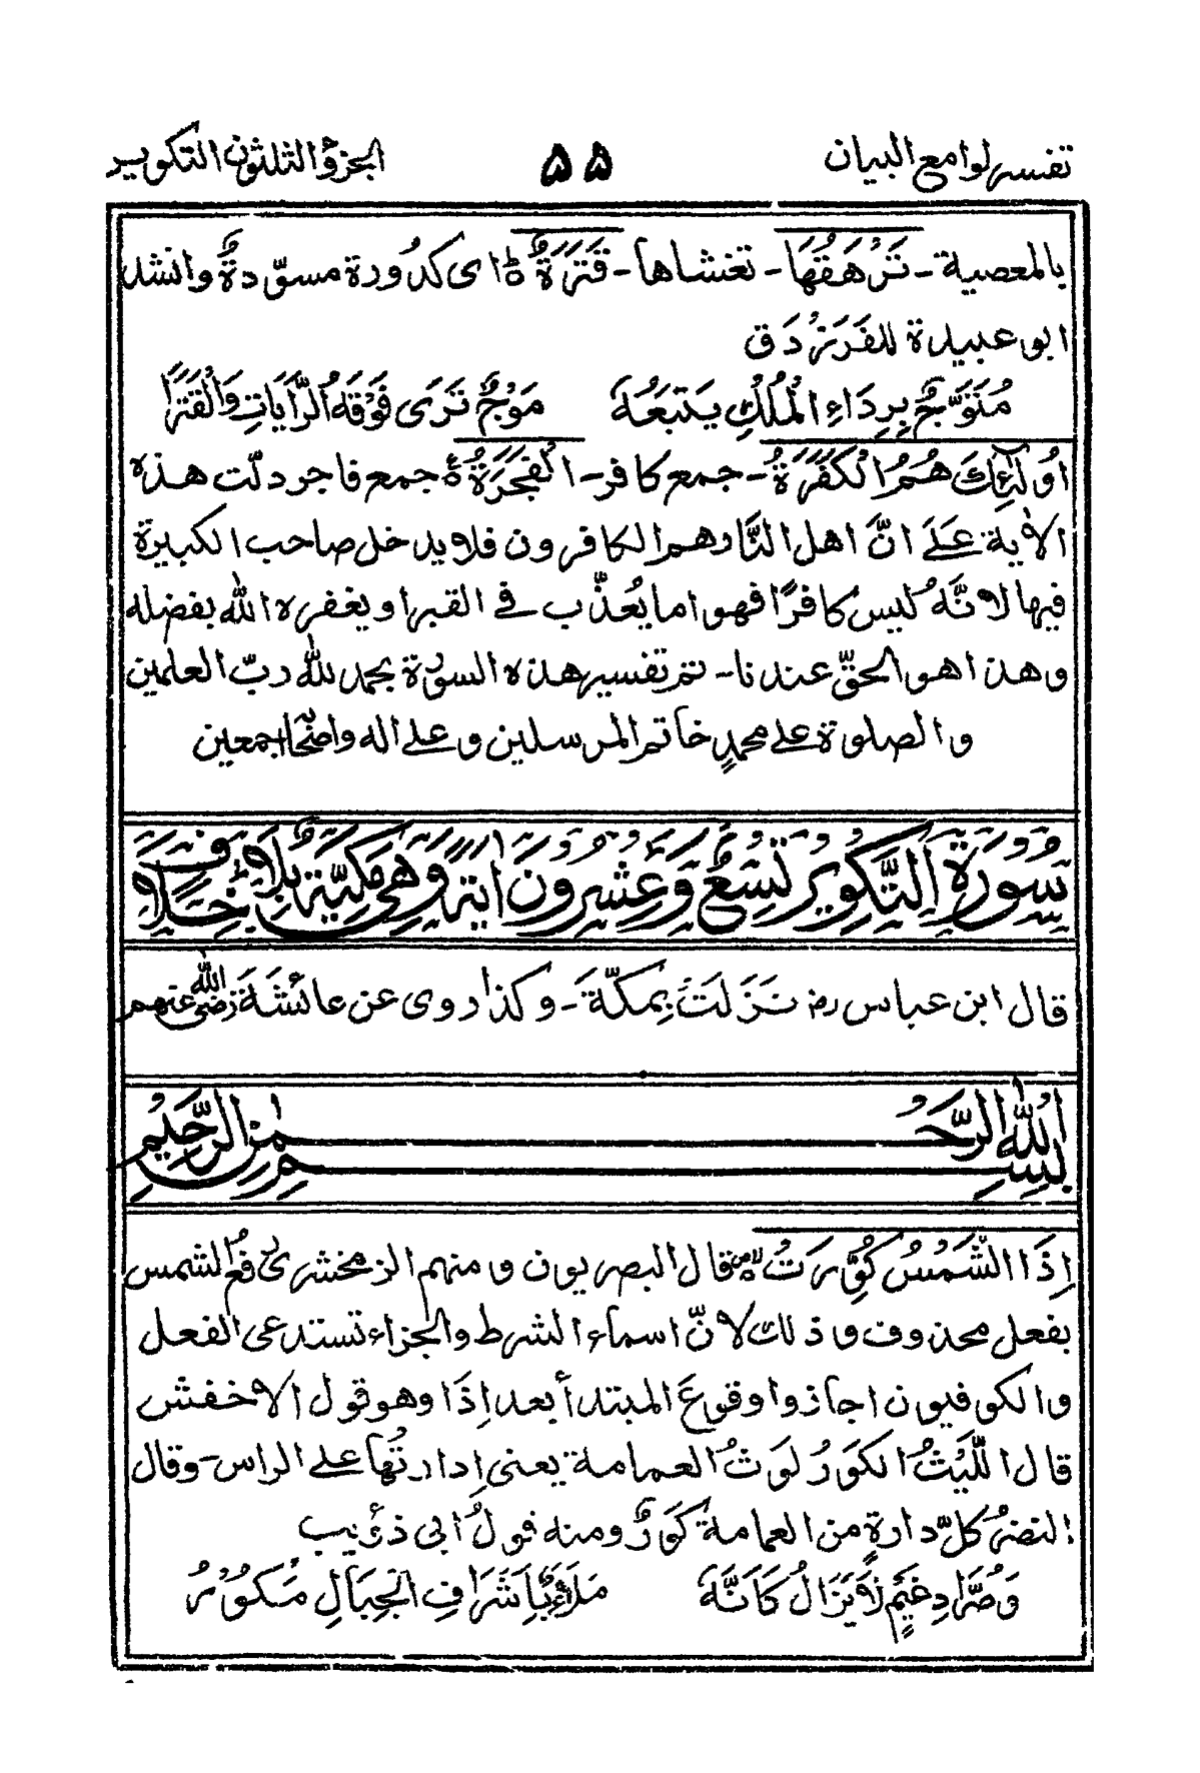 تفسير لوامع البيان ۵۵ الجزؤ الثلثون التكوير
بالمعصية ـ تَرْهَقُهَا ـ تغشاها ـ قَتَرَةٌ ط اى كدُورة مسوّدةٌ وانشد
ابو عبيدة للفَرَزْدَق
مُتَوَّجٌ بِرِدَاءِ الْمُلْكِ يَتبَعُهٗ مَوْجٌ تَرَى فَوْقَهُ الرَّأيَاتِ وَالْقَتَرَا
اُولٰٓئِكَ هُمُ الْكَفَرَةُ ـ جمع كافر ـ الْفَجَرَةُ جمع فاجر دلّت هذه
الاٰية عَلَے انَّ اهل النّار هم الكافرون فلا يدخل صاحب الكبيرة
فيها لانَّهٗ ليس كافرًا فهو اما يُعذّب فے القبر او يغفره الله بفضله
وهذا هو الحقّ عندنا ـ تم تفسير هذه السورة بحمد لله ربّ العلمين
والصلوة علے محمدٍ خاتم المرسلين وعلے اله واصحٰا اجمعين
سُوْرَةُ التَّكْوِيْرِ تِسْعٌ وَعِشْرُوْنَ اٰيَةً وَّهِىَ مَكِّيَّةٌ بِلَا خِلَافٍ
قال ابن عباس رض نَزَلَتْ بِمكّةَ ـ وكذا روى عن عائشَةَ رضى الله عنهم
بِسْمِ اللهِ الرَّحْمٰنِ الرَّحِيْمِ
اِذَا الشَّمْسُ كُوِّرَتْ قال البصريون ومنهم الزمخشرى رفعُ الشمس
بفعل محذوف وذلك لانّ اسماء الشرط والجزاء تستدعى الفعل
والكوفيون اجازوا وقوعَ المبتدأ بعد اِذَا وهو قول الاخفش
قال اللَّيْثُ الكَوْرُ لَوْثُ العمامة يعنى اِدارتُها علے الراس ـ وقال
النضرُ كلّ دارةٍ من العمامة كَوْرٌ ومنه قولُ ابى ذؤيب
وَصُرَّادِ غَيْمٍ لَا يَزَالُ كَانَّهٗ مَلَاءٌ بِاَشْرَافِ الْجِبَالِ مَكُوْرُ